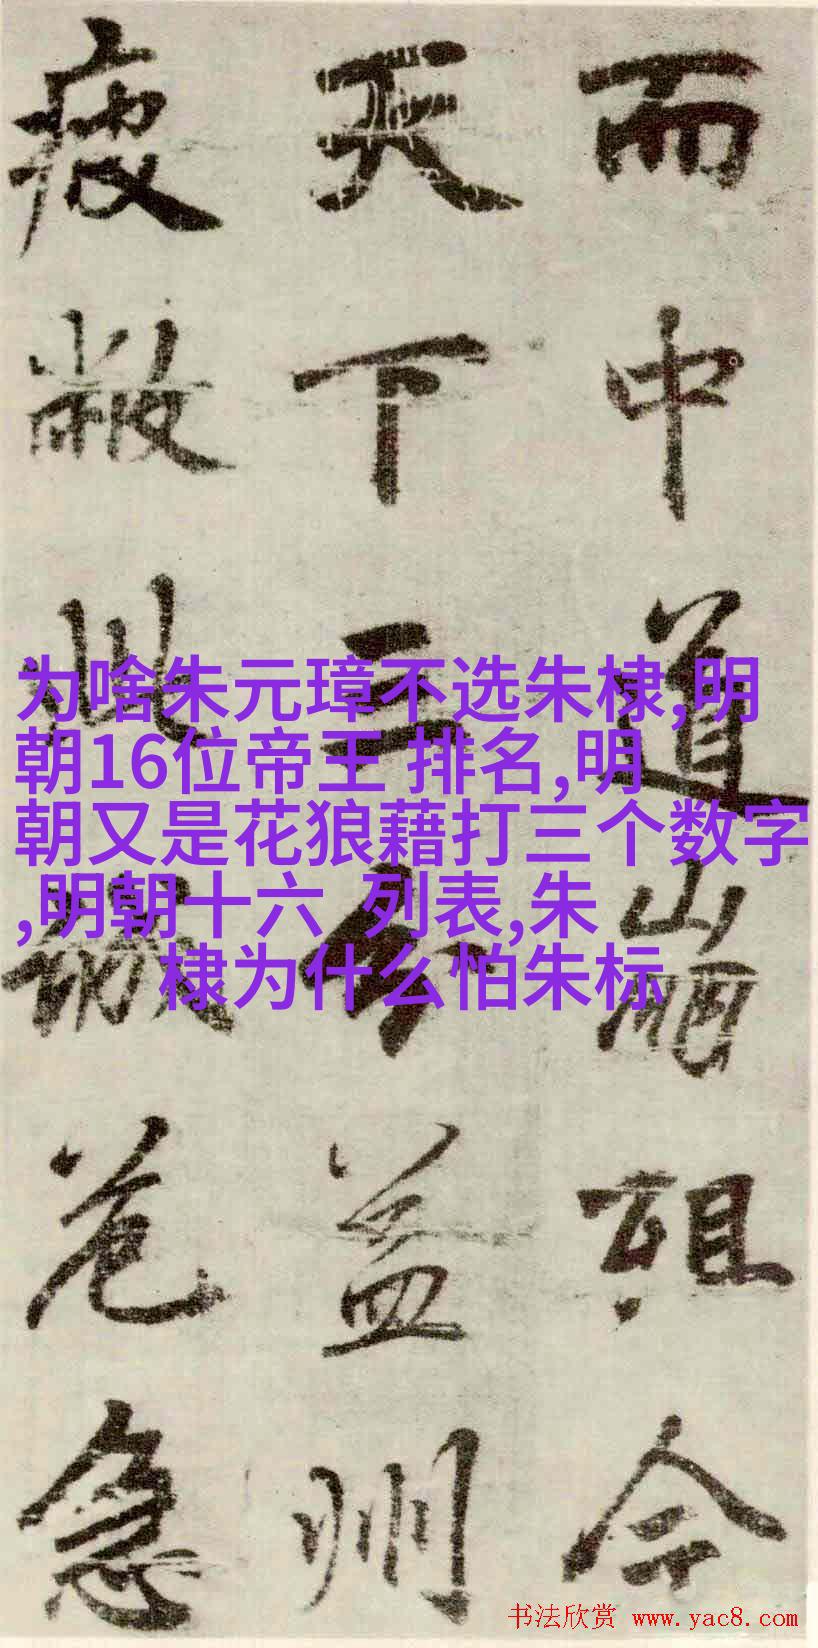 而中道崩殂今
天下三分益州
疲敝此誠危急
为啥朱元璋不选朱棣,明
朝16位帝王 排名,明
朝又是花狼藉打三个数字
,明朝十六 列表,朱
棣为什么怕朱标
书法欣赏 www.yac8.com